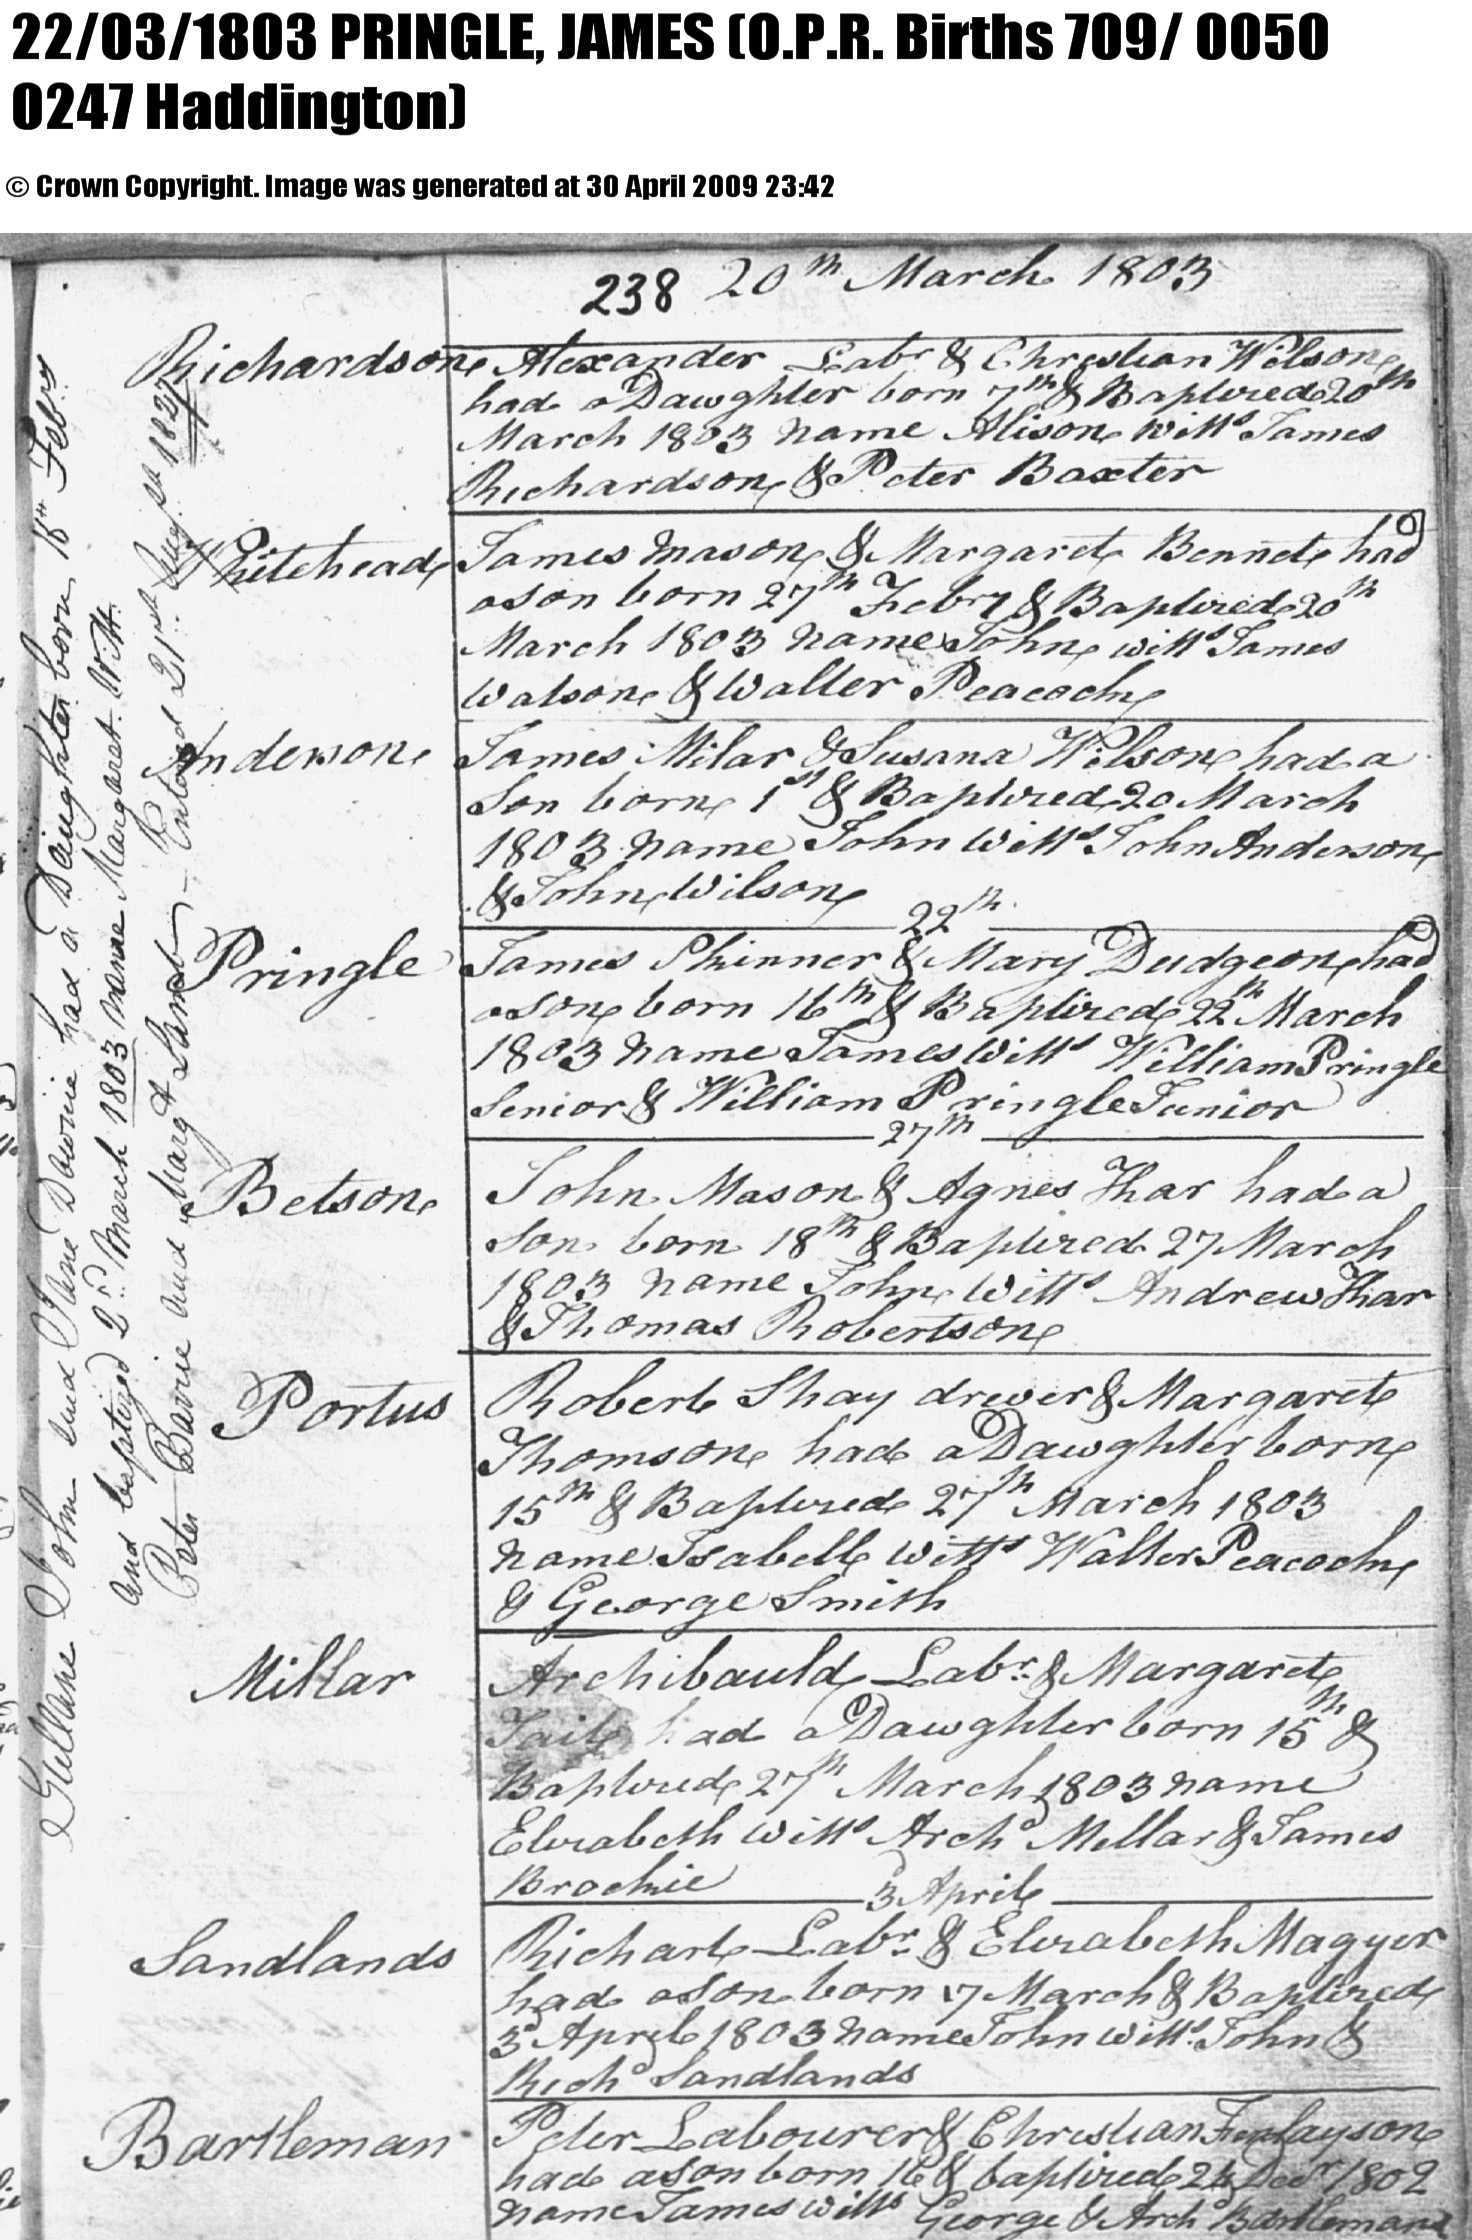 22/03/1803 PRINGLE, JAMES (O.P.R. Births 709/ 0050
0247 Haddington)
© Crown Copyright. Image was generated at 30 April 2009 23:42
238 20th March 1803
Richardson Alexander Labr & Christian Wilson
had a Dawghter born 7th & Baptized 20th
March 1803 name Alison witts James
Richardson & Peter Baxter
Whitehead James Mason & Margaret Bennet had
a son born 27th Febry & Baptized 20th
March 1803 name John witts James
Watson & Walter Peacock
Anderson James Milar & Susana Wilson had a
Son born 1st & Baptized 20 March
1803 name John Witts John Anderson
& John Wilson
22th
Pringle James Skinner & Mary Dudgeon had
a son born 16th & Baptized 22th March
1803 name James Witts William Pringle
Senior & William Pringle Junior
27th
Betson John Mason & Agnes Khar had a
Son born 18th & Baptized 27 March
1803 name John Witts Andrew Khar
& Thomas Robertson
Portus Robert Shay drewer & Margaret
Thomson had a Dawghter born
15th & Baptized 27th March 1803
name Isabell witts Walter Peacock
& George Smith
Millar Archibauld Labr & Margaret
Tait had a Dawghter born 15th &
Baptized 27th March 1803 name
Elizabeth witts Archd Millar & James
Brockie
3 April
Sandlands Richart Labr & Elizabeth Magyer
had a son born 17 March & Baptized
3d April 1803 name John witts John &
Richd Sandlands
Bartleman Peter Labourer & Christian Finlayson
had a son born 16 & baptized 24 Decr 1802
name James witts George & Archd Bartlemans
Gullane John and Jane Davie had a Daughter born 18th Febry
and baptized 2d March 1803 name Margaret. Witt.
Peter Bavrie and Margt Lamb - Entered 21st Augst 1827